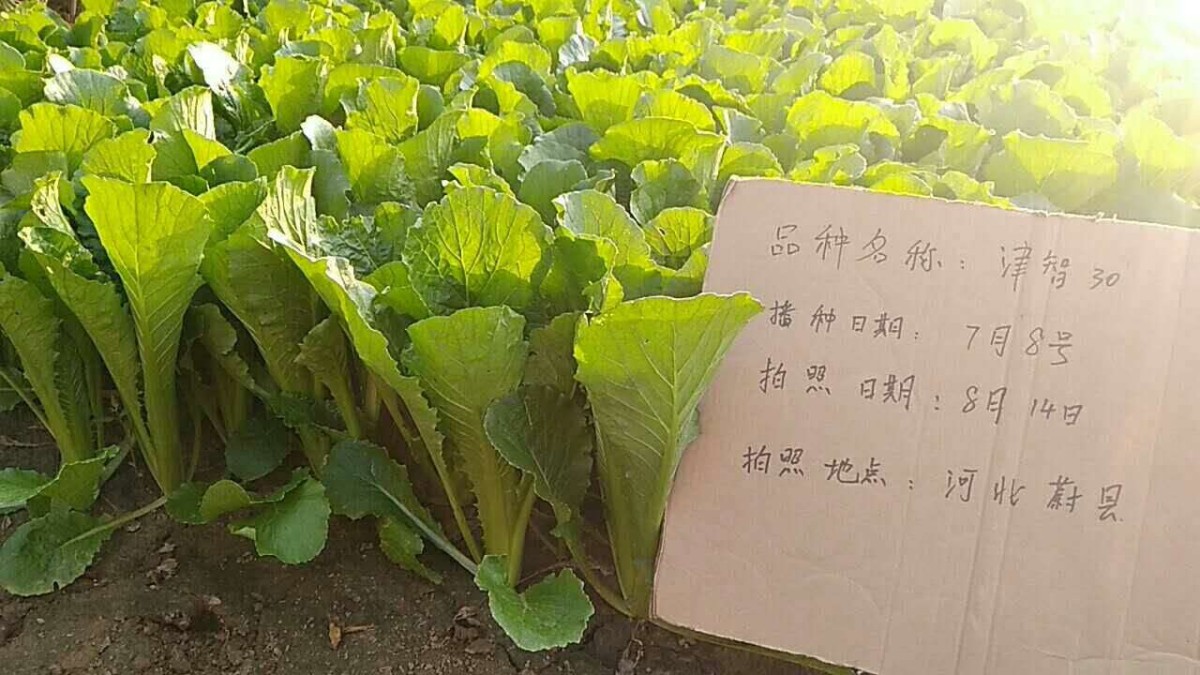 品种名称：津智30
播种日期：7月8号
拍照日期：8月14日
拍照地点：河北蔚县